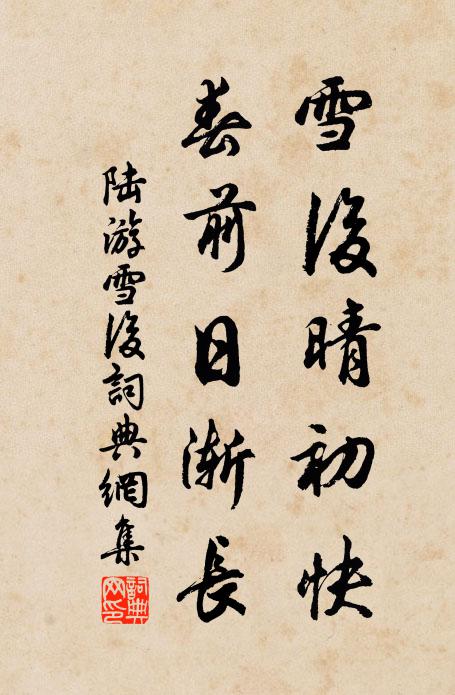 雪後晴初快
春前日漸長
陸游雪後詞典網集
詞典
网印